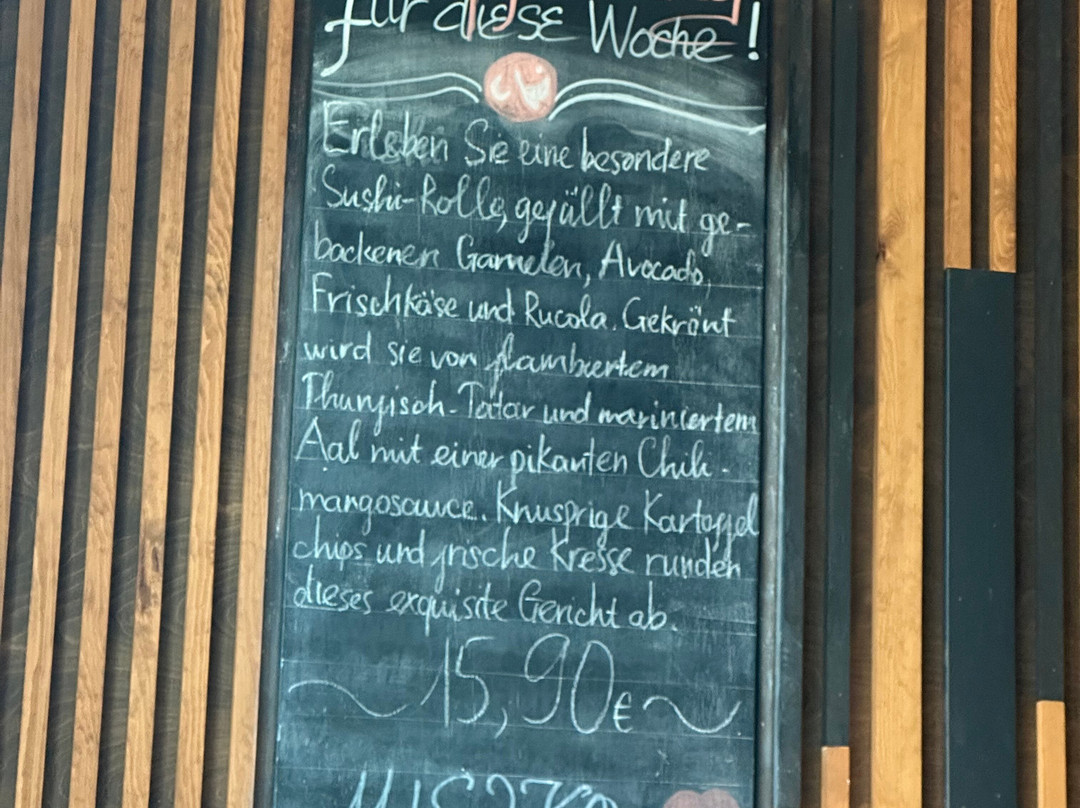 für diese Woche!
Erleben Sie eine besondere
Sushi-Rolle, gefüllt mit ge-
backenen Garnelen, Avocado,
Frischkäse und Rucola. Gekrönt
wird sie von flambiertem
Thunfisch-Tatar und mariniertem
Aal mit einer pikanten Chili-
mangosauce. Knusprige Kartoffel
chips und frische Kresse runden
dieses exquisite Gericht ab.
~ 15,90€ ~